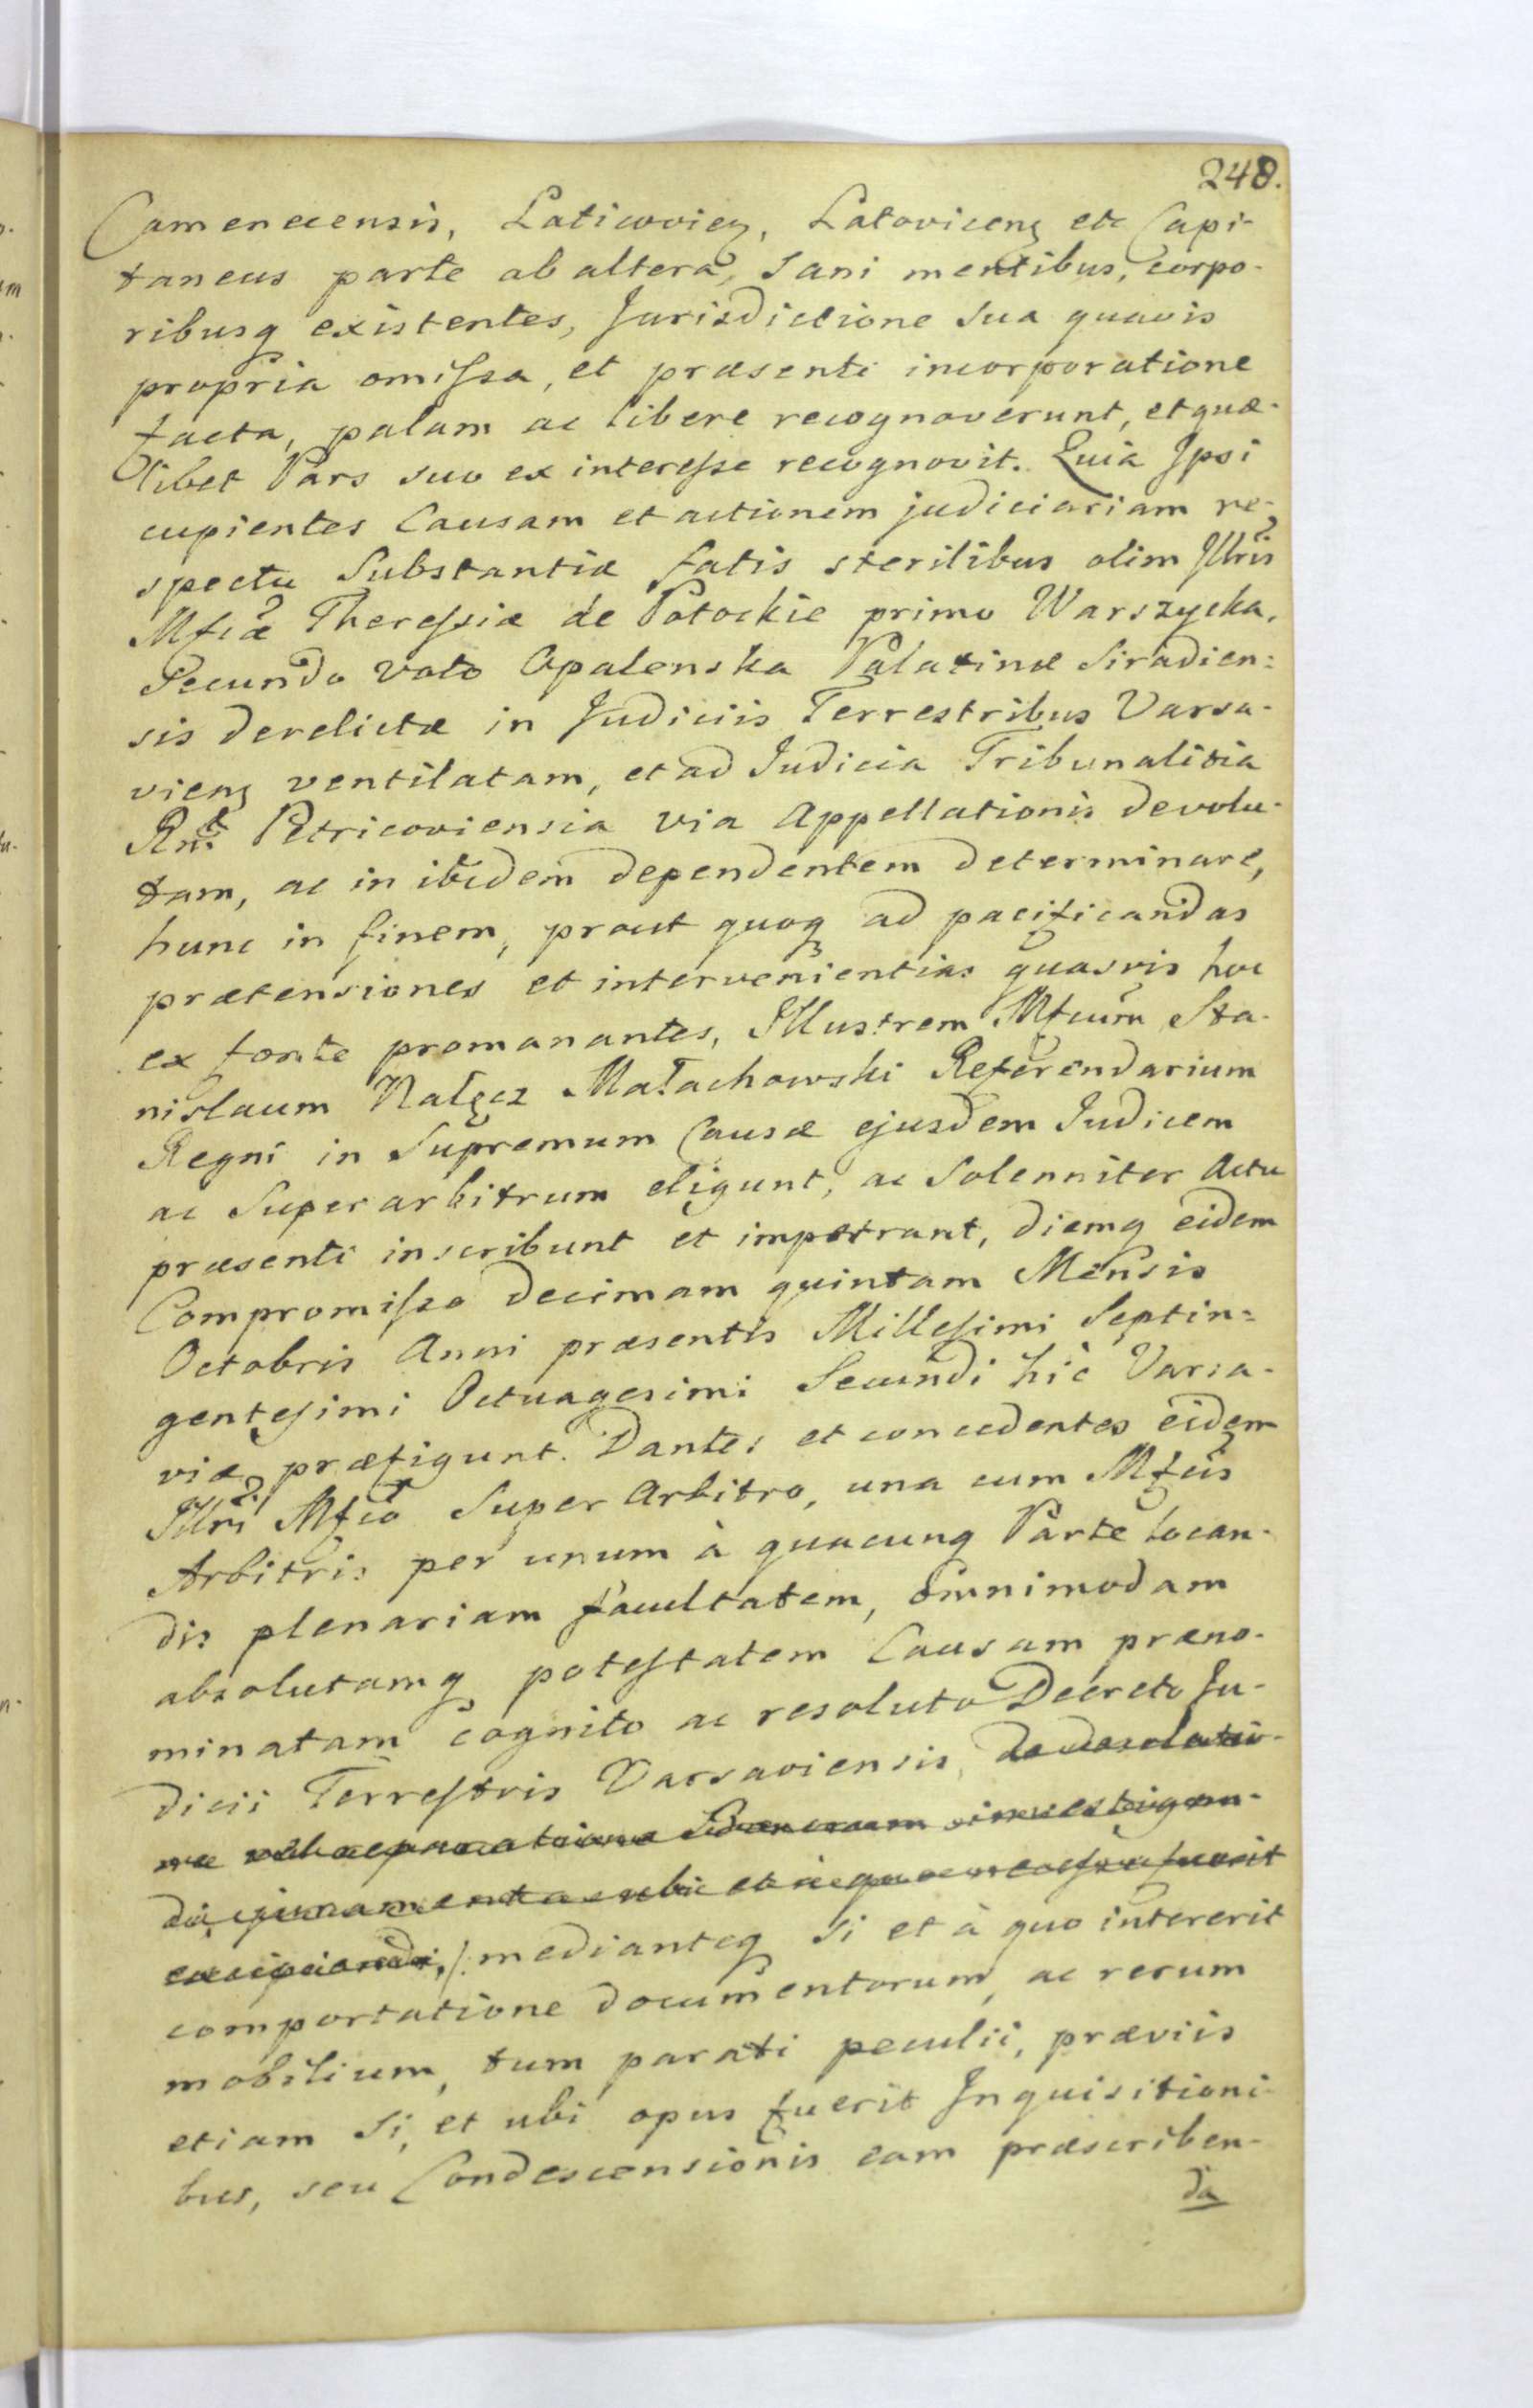 248.
Camenecensis, Laticoviens, Latovicens etc Capi-
taneus parte ab altera, Sani mentibus, corpo-
ribusq existentes, Jurisdictione Sua quavis
propria omissa, et præsenti incorporatione
facta, palam ac libere recognoverunt, et quæ-
libet Pars suo ex interesse recognovit. Quia Ipsi
cupientes Causam et actionem judiciariam re-
spectu Substantiæ fatis sterilibus olim Illris
Mfcæ Theressiæ de Potockie primo Warszycka,
Secundo Voto Opalenska Palatinæ Siradien=
sis derelictæ in Judiciis Terrestribus Varsa-
viens ventilatam, et ad Judicia Tribunalitia
Rnt Petricoviensia via Appellationis devolu-
tam, ac in ibidem dependentem determinare,
hunc in finem, prout quoq ad pacificandas
prætensiones et intervenientias quasvis hoc
ex fonte promanantes, Illustrem Mfcum Sta-
nislaum Nałęcz Małachowski Referendarium
Regni in Supremum Causæ ejusdem Judicem
ac Superarbitrum eligunt, ac Solenniter Actu
præsenti inscribunt et impetrant, diemq eidem
Compromisso decimam quintam Mensis
Octobris Anni præsentis Millesimi Septin=
gentesimi Octuagesimi Secundi hic Varsa-
viæ præfigunt. Dantes et concedentes eidem
Illri Mfco Super Arbitro, una cum Mfcis
Arbitris per unum à quacunq Parte locan-
dis plenariam facultatem, omnimodam
absolutamq potestatem Causam præno-
minatam cognito ac resoluto Decreto Ju-
dicii Terrestris Varsaviensis, de desolatio-
ne investigan-
di, juramenta ubi et a quo fuerit
excipiendi, /: medianteq si et à quo intererit
comportatione documentorum, ac rerum
mobilium, tum parati peculii, præviis
etiam si, et ubi opus fuerit Inquisitioni-
bus, seu Condescensionis eam præscriben-
da